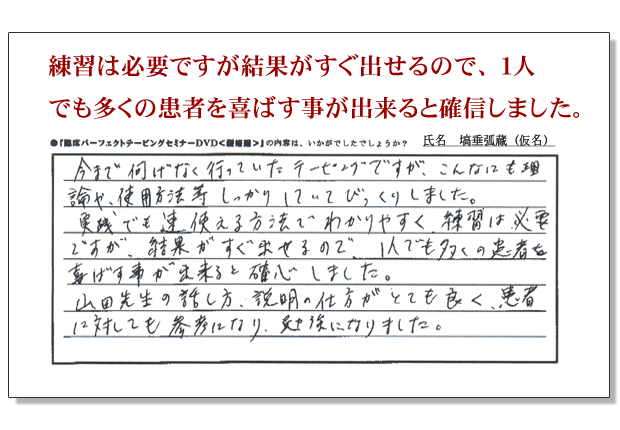 練習は必要ですが結果がすぐ出せるので、1人
でも多くの患者を喜ばす事が出来ると確信しました。
●『臨床パーフェクトテーピングセミナーDVD<腰痛編>』の内容は、いかがでしたでしょうか? 氏名 塙垂弧蔵(仮名)
今まで何げなく行っていたテーピングですが、こんなにも理
論や、使用方法等しっかりしていてびっくりしました。
実践でも速使える方法でわかりやすく、練習は必要
ですが、結果がすぐ出せるので、1人でも多くの患者を
喜ばす事が出来ると確心しました。
山田先生の話し方、説明の仕方がとても良く、患者
に対しても参考になり、勉強になりました。